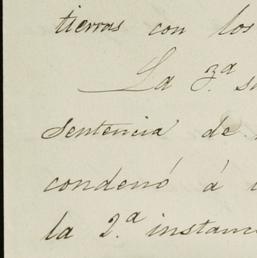 tierras con los
La 3.ª s
Sentencia de
condenó á
la 2.ª instanc